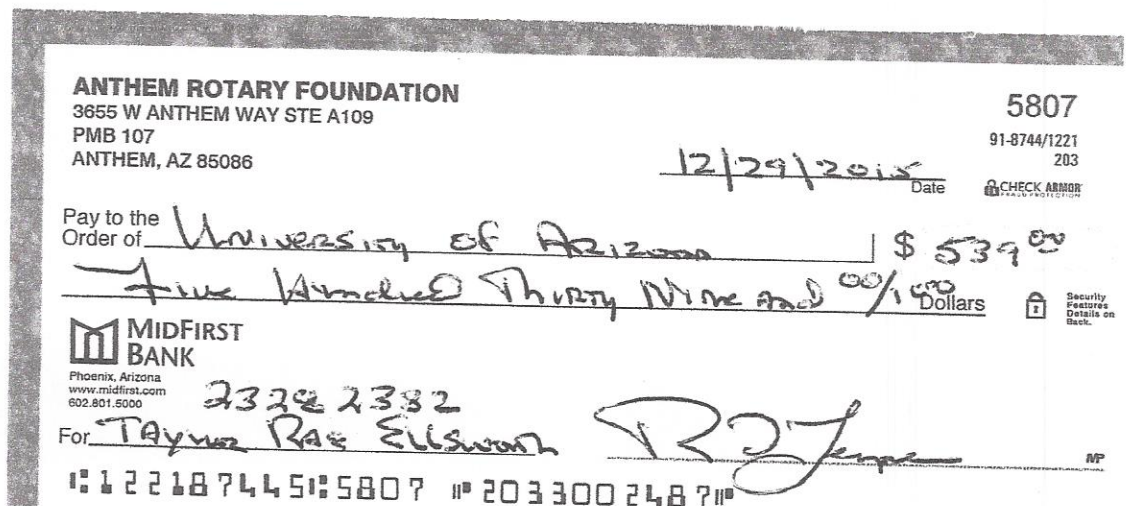 ANTHEM ROTARY FOUNDATION
3655 W ANTHEM WAY STE A109
PMB 107
ANTHEM, AZ 85086
5807
91-8744/1221
203
12/29/2015
Date
CHECK ARMOR
FRAUD PROTECTION
Pay to the
Order of University of Arizona $ 539 00
Five Hundred Thirty Nine and 00/100 Dollars
Security
Features
Details on
Back.
MIDFIRST
BANK
Phoenix, Arizona
www.midfirst.com
602.801.5000
For Taylor Rae Ellsworth
MP
⑆122187445⑆5807 ⑈2033002487⑈